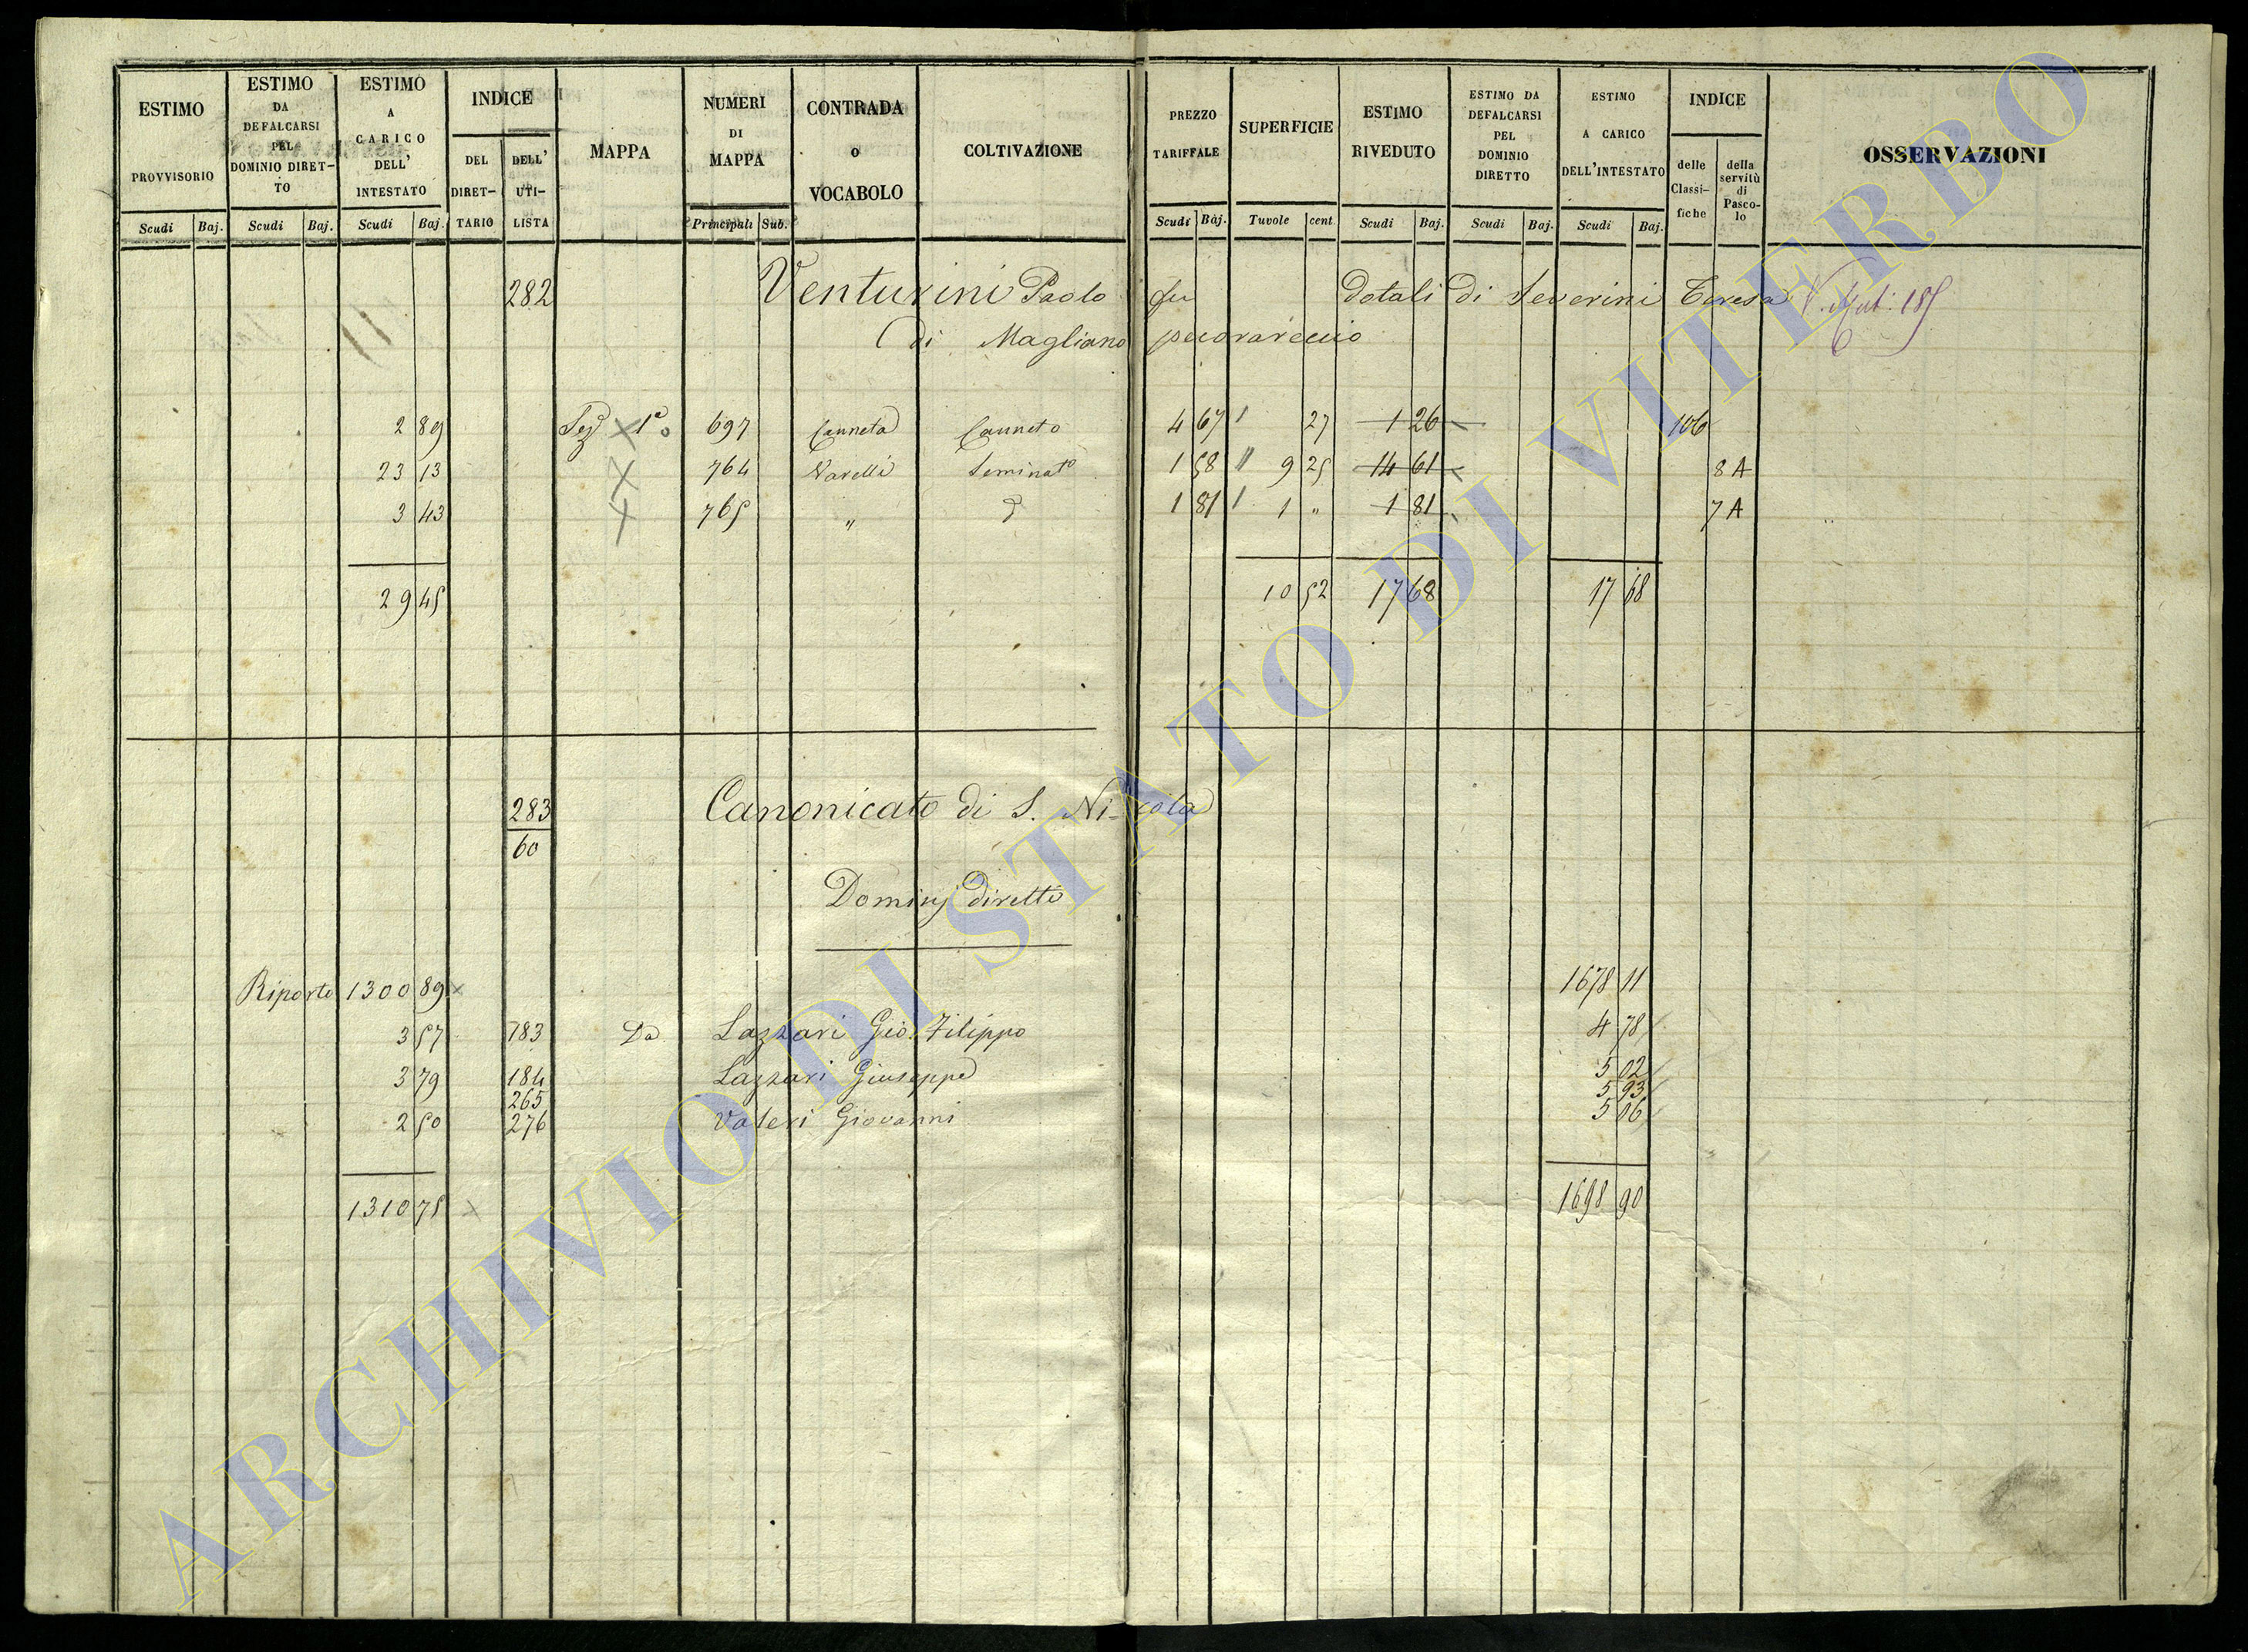 ESTIMO PROVVISORIO | ESTIMO DA DEFALCARSI PEL DOMINIO DIRET-TO | ESTIMO A CARICO DELL' INTESTATO | INDICE DEL DIRET-TARIO | DELL' UTI-LISTA | MAPPA | NUMERI DI MAPPA | CONTRADA O VOCABOLO | COLTIVAZIONE | PREZZO TARIFFALE | SUPERFICIE | ESTIMO RIVEDUTO | ESTIMO DA DEFALCARSI PEL DOMINIO DIRETTO | ESTIMO A CARICO DELL'INTESTATO | INDICE delle Classi-fiche | della servitù di Pasco-lo | OSSERVAZIONI
Scudi Baj. Scudi Baj. Scudi Baj. Principali Sub. Scudi Baj. Tavole cent. Scudi Baj. Scudi Baj. Scudi Baj.
282 Venturini Paolo fu dotali di Severini Teresa V. Mut. 185
di Magliano pecorareccio
2 89 Sez 1a 697 Canneta Canneto 4 67 27 1 26 106
23 13 764 Varelli Seminato 1 58 9 25 14 61 8 A
3 43 765 " d 1 81 1 " 1 81 7 A
29 45 10 52 17 68 17 68
283 Canonicato di S. Nicola
60
Dominj diretti
Riporto 1300 89 1678 11
3 57 183 Da Lazzari Gio. Filippo 4 78
3 79 184 Lazzari Giuseppe 5 02
265 5 93
2 50 276 Valeri Giovanni 5 06
1310 75 1698 90
ARCHIVIO DI STATO DI VITERBO